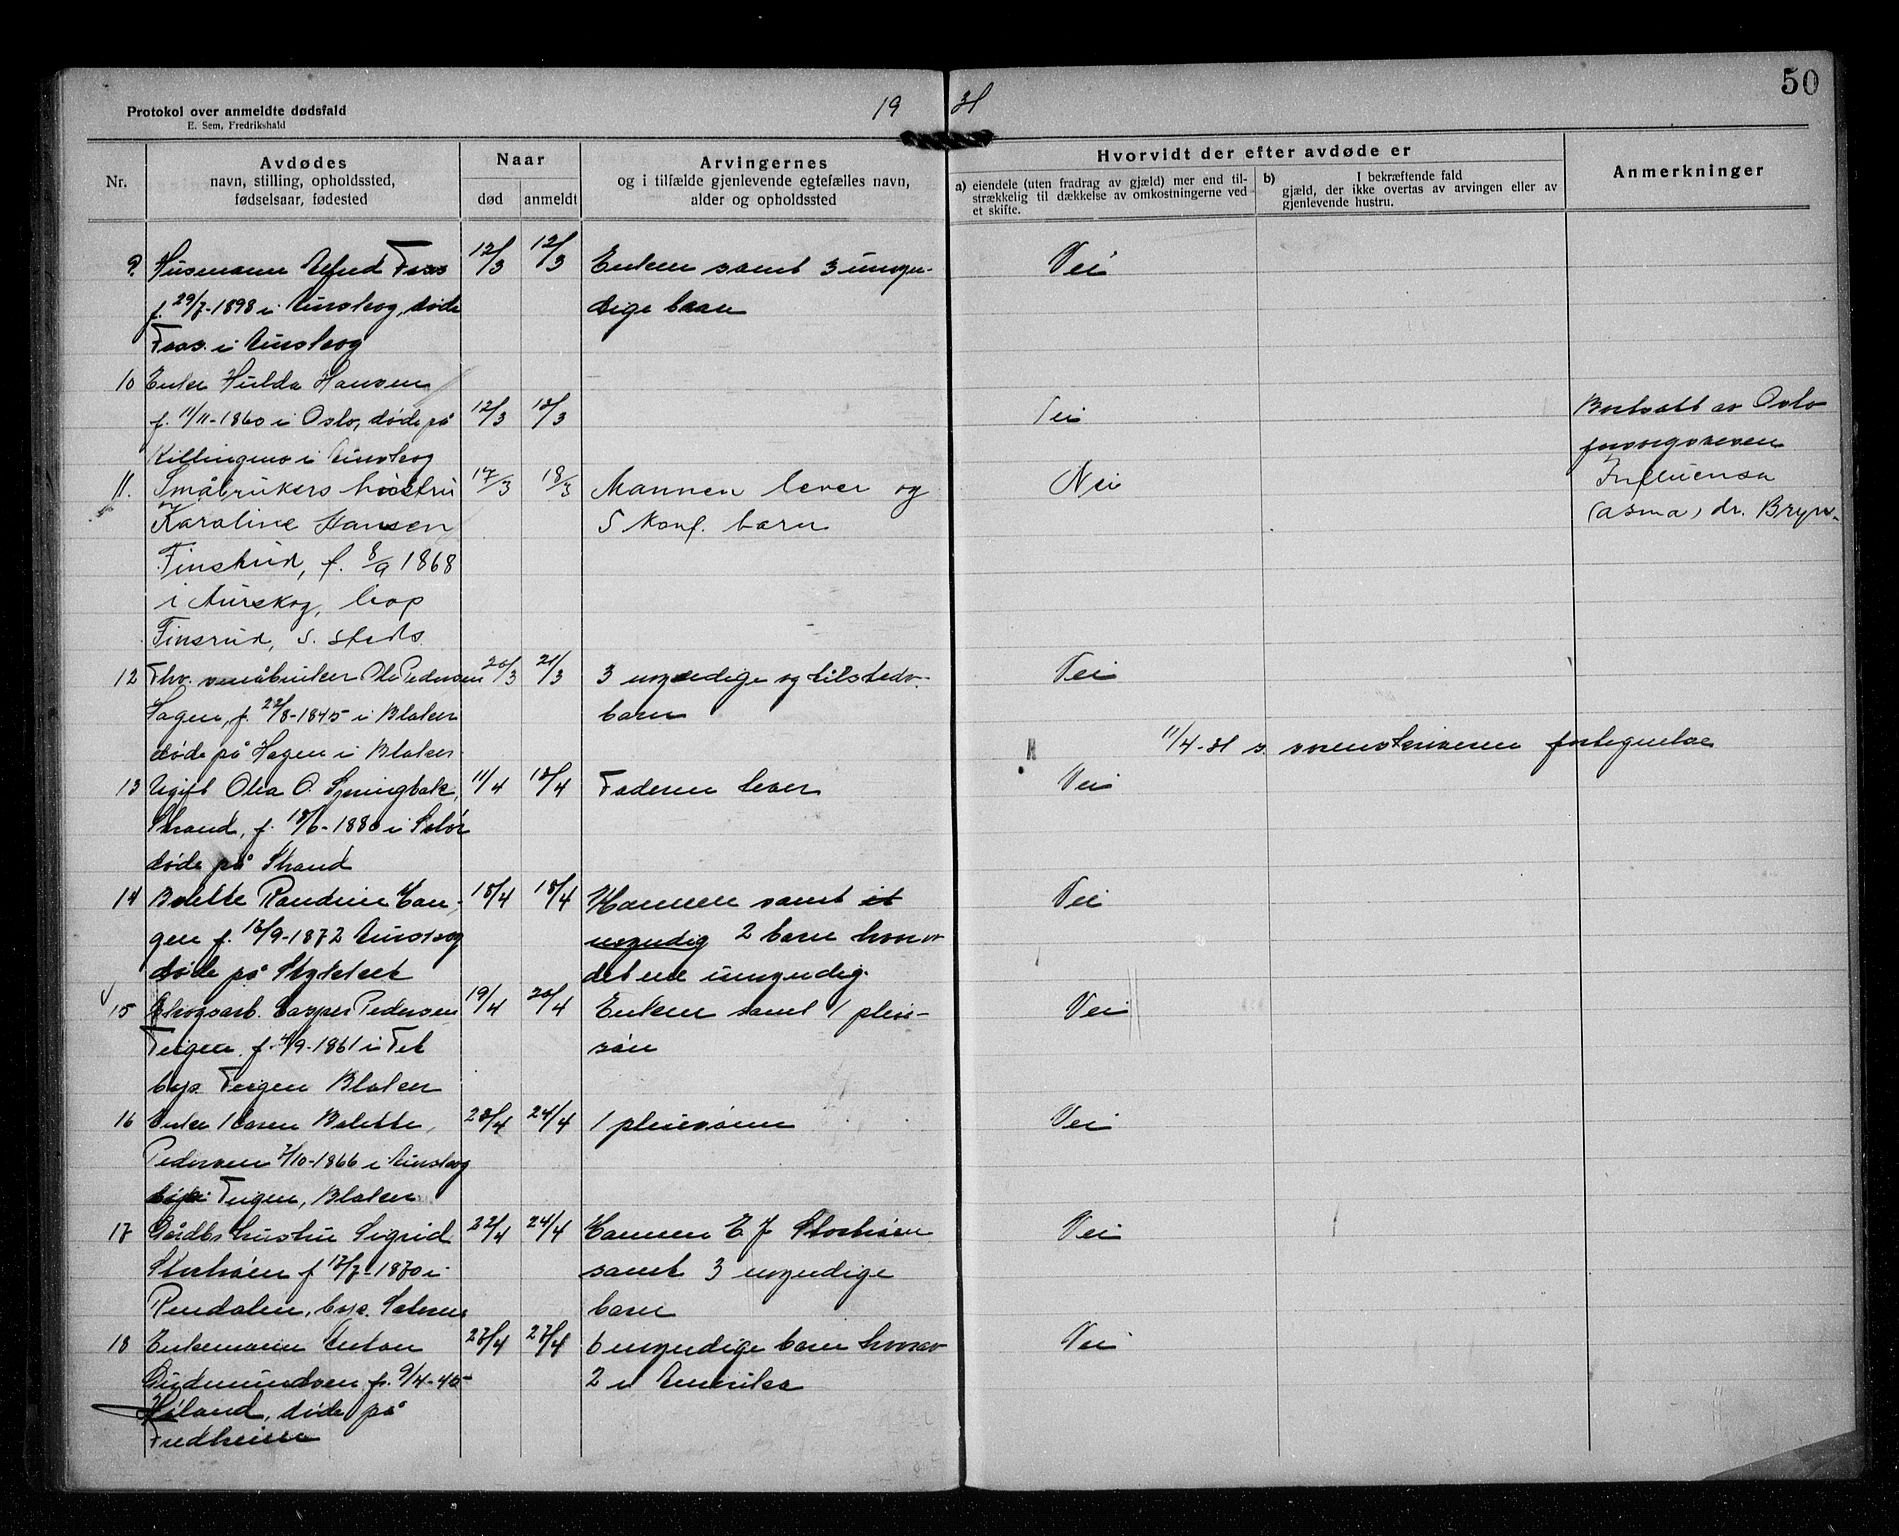 50
Protokol over anmeldte dødsfald
E. Sem, Fredrikshald
19 31
Nr.
Avdødes
navn, stilling, opholdssted,
fødselsaar, fødested
Naar
død
anmeldt
Arvingernes
og i tilfælde gjenlevende egtefælles navn,
alder og opholdssted
Hvorvidt der efter avdøde er
a) eiendele (uten fradrag av gjæld) mer end til-
strækkelig til dækkelse av omkostningerne ved
et skifte.
b) I bekræftende fald
gjæld, der ikke overtas av arvingen eller av
gjenlevende hustru.
Anmerkninger
9. Husmann 12/3 12/3 Enken samt 3 umyn- Nei
f. 29/7-1898 i Aurskog, døde dige barn
i Aurskog
10 Enke Hulda Hansen
f. 11/11-1860 i Oslo, døde på 12/3 13/3 Nei Bortsatt av Oslo
i Aurskog forsorgsvesen
11. Småbrukers hustru 17/3 18/3 Mannen lever og Nei Influensa
Karoline Hansen 5 konf. barn (asma) dr. Bryn.
Finstrud, f. 8/9 1868
i Aurskog, bop
Finsrud, s. steds.
12 Fhv. småbruker Ole Pedersen 20/3 21/3 3 myndige og tilsteds. Nei
Hagen, f. 22/8-1845 i Blaker barn
døde på Hagen i Blaker 11/4-31 s. sorenskriveren fortegnelse
13 Ugift Olea O. 11/4 13/4 Faderen lever Nei
Strand, f. -1880 i Solør
døde på Strand
14 Bolette Randine Han- 18/4 18/4 Mannen samt et Nei
gen f. 13/9-1872 Aurskog myndig 2 barn hvorav
døde på det ene umyndig.
15 Skogsarb. Casper Pedersen 19/4 20/4 Enken samt 1 pleie- Nei
Teigen f. -1861 i Fet søn
bops. Teigen Blaker
16 Enke Karen Bolette 23/4 24/4 1 pleiesønn Nei
Pedersen 7/10-1866 i Aurskog
Teigen, Blaker
17 Gårdbr. hustru Sigrid 22/4 24/4 Mannen E. J. Nei
f 13/7-1870 i samt 3 myndige
Rendalen, bops. barn
18 Enkemann Anton 27/4 27/4 6 myndige barn hvorav Nei
Gudmundsen f. 9/4-45 2 i Amerika
Høland, døde på
Fredheim